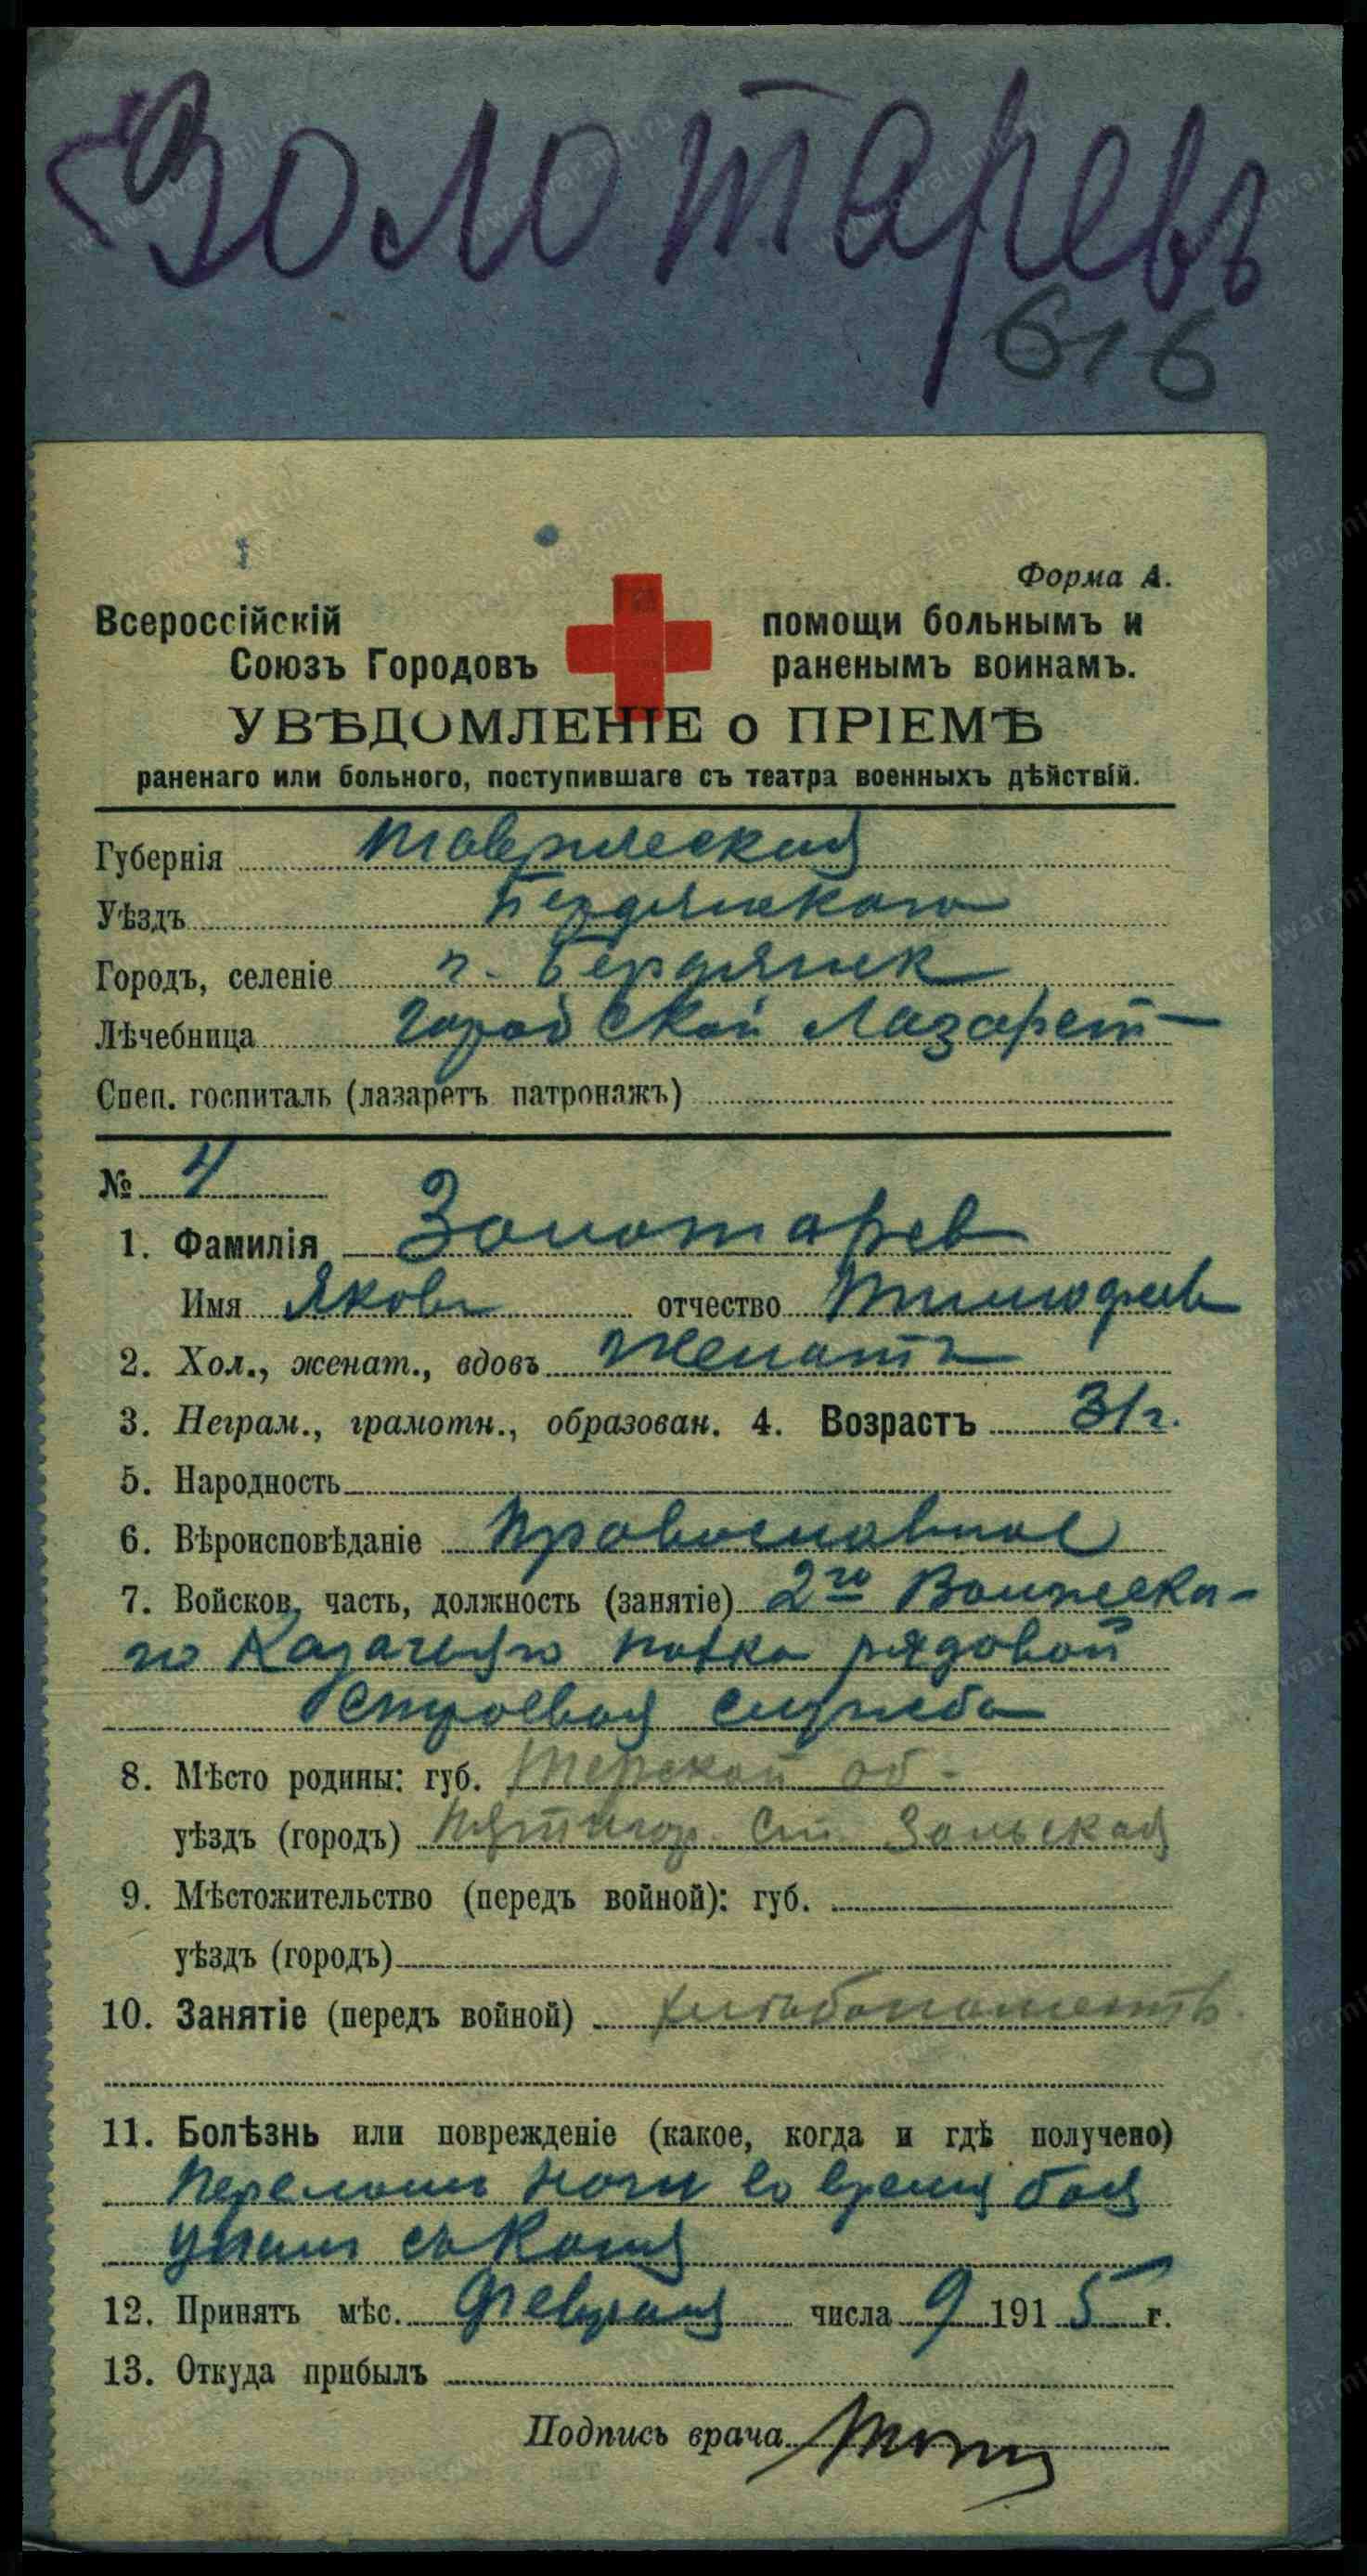 Золотаревъ
616
Форма А.
Всероссійскій
Союзъ Городовъ
помощи больнымъ и
раненымъ воинамъ.
УВѢДОМЛЕНІЕ о ПРІЕМѢ
раненаго или больного, поступившаго съ театра военныхъ дѣйствій.
Губернія Таврическая
Уѣздъ Бердянскаго
Городъ, селеніе г. Бердянск
Лѣчебница Городской Лазарет
Спец. госпиталь (лазаретъ патронажъ)
№ 4
1. Фамилія Золотарев
Имя Яковъ отчество Тимофеев
2. Хол., женат., вдовъ Женатъ
3. Неграм., грамотн., образован. 4. Возрастъ 31 г.
5. Народность
6. Вѣроисповѣданіе Православное
7. Войсков. часть, должность (занятіе) 2го Волжска-
го Казачьяго полка рядовой
Строевая служба
8. Мѣсто родины: губ. Терской об-
уѣздъ (городъ) Пятигор Ст Зольская
9. Мѣстожительство (передъ войной): губ.
уѣздъ (городъ)
10. Занятіе (передъ войной) хлебопашесть
11. Болѣзнь или поврежденіе (какое, когда и гдѣ получено)
Переломъ ноги во время боя
упалъ съ Коня
12. Принятъ мѣс. Февраля числа 9 1915 г.
13. Откуда прибылъ
Подпись врача